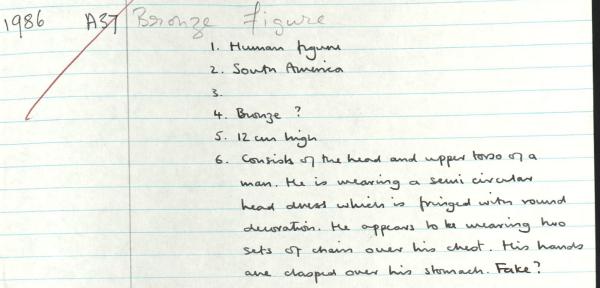 1986 A37 Bronze Figure
1. Human figure
2. South America
3.
4. Bronze ?
5. 12 cm high
6. Consists of the head and upper torso of a
man. He is wearing a semi circular
head dress which is fringed with round
decoration. He appears to be wearing two
sets of chain over his chest. His hands
are clasped over his stomach. Fake?